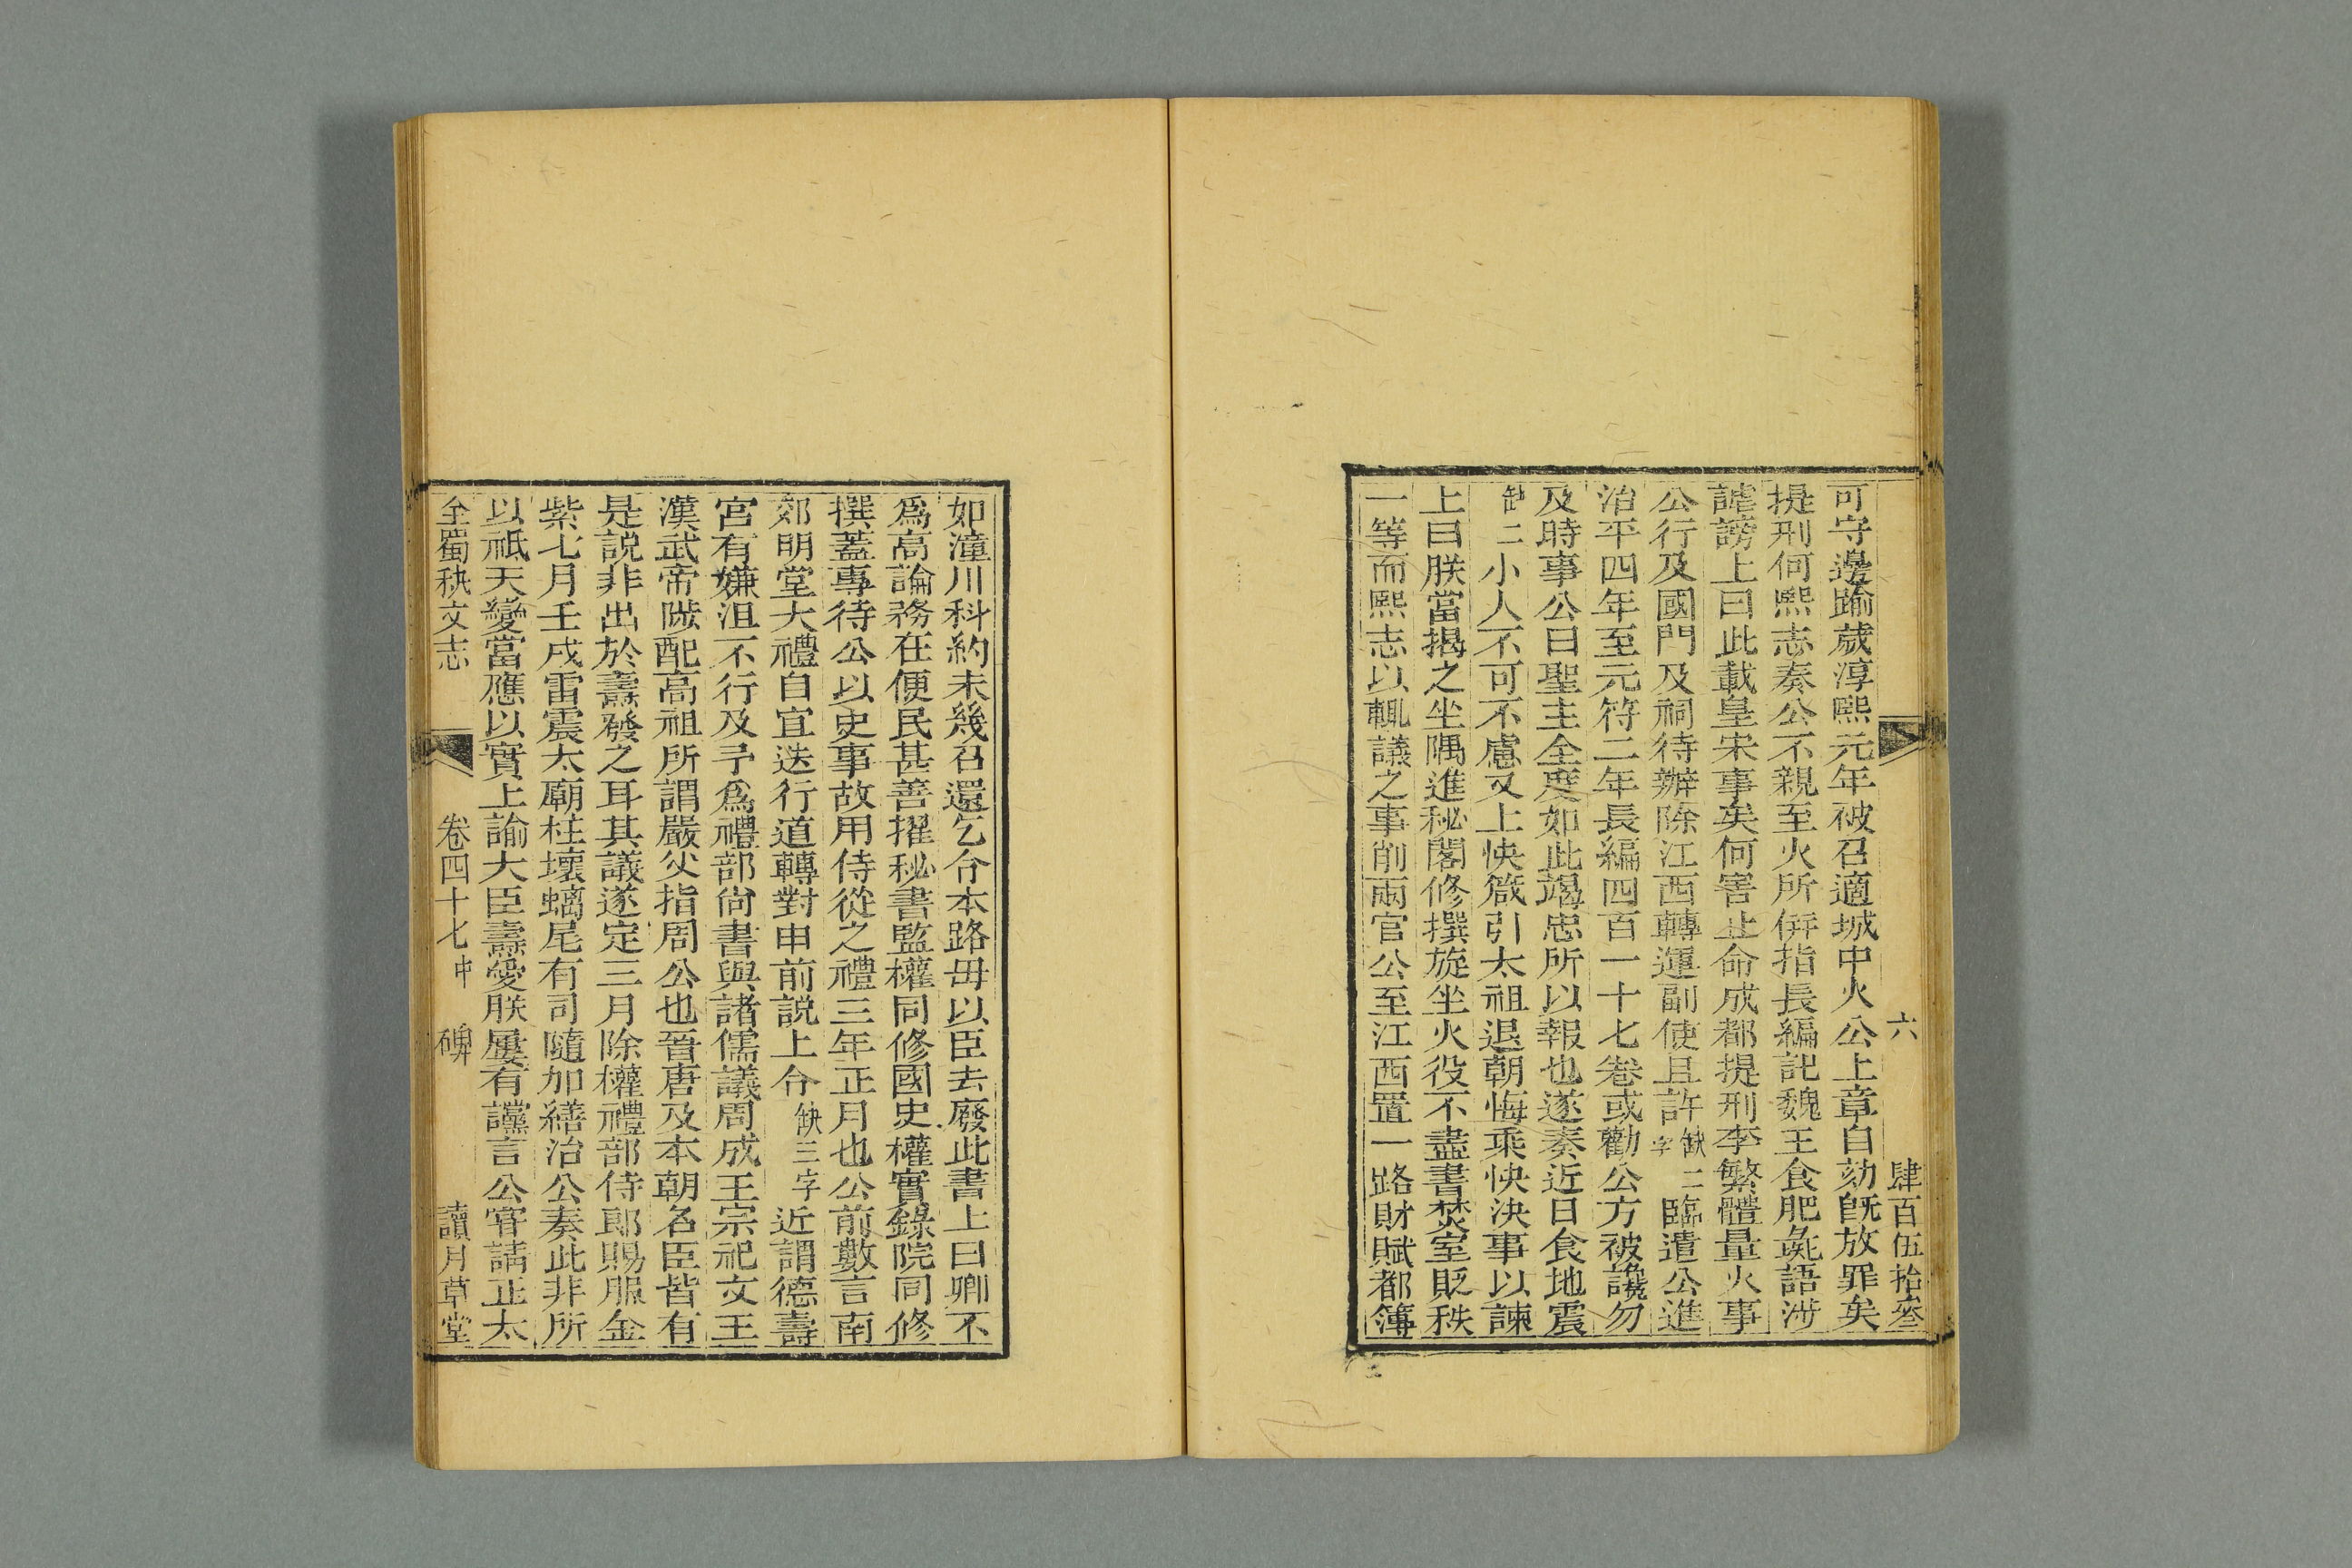 六 肆百伍拾叄
可守邊踰歲淳熙元年被召適城中火公上章自劾旣放罪矣
提刑何熙志奏公不親至火所併指長編記魏王食肥彘語涉
謗上曰此載皇宋事矣何害止命成都提刑李繁體量火事
公行及國門及祠待辦除江西轉運副使且許缺二字臨遣公進
治平四年至元符二年長編四百一十七卷或勸公方被讒勿
及時事公曰聖主全度如此竭忠所以報也遂奏近日食地震
缺二小人不可不慮又上快箴引太祖退朝悔乘快決事以諫
上曰朕當揭之坐隅進秘閣修撰旋坐火役不盡書焚室貶秩
一等而熙志以輒議之事削兩官公至江西置一路財賦都簿
如潼川科約未幾召還乞令本路毋以臣去廢此書上曰卿不
爲高論務在便民甚善擢秘書監權同修國史權實錄院同修
撰蓋專待公以史事故用侍從之禮三年正月也公前數言南
郊明堂大禮自宜迭行道轉對申前說上令缺三字近謂德壽
宮有嫌沮不行及予爲禮部尙書與諸儒議周成王宗祀文王
漢武帝陟配高祖所謂嚴父指周公也晉唐及本朝名臣皆有
是說非出於壽發之耳其議遂定三月除權禮部侍郎賜服金
紫七月壬戌雷震太廟柱壞螭尾有司隨加繕治公奏此非所
以祗天變當應以實上諭大臣壽愛朕屢有讜言公嘗請正太
全蜀秇文志 卷四十七中 碑 讀月草堂